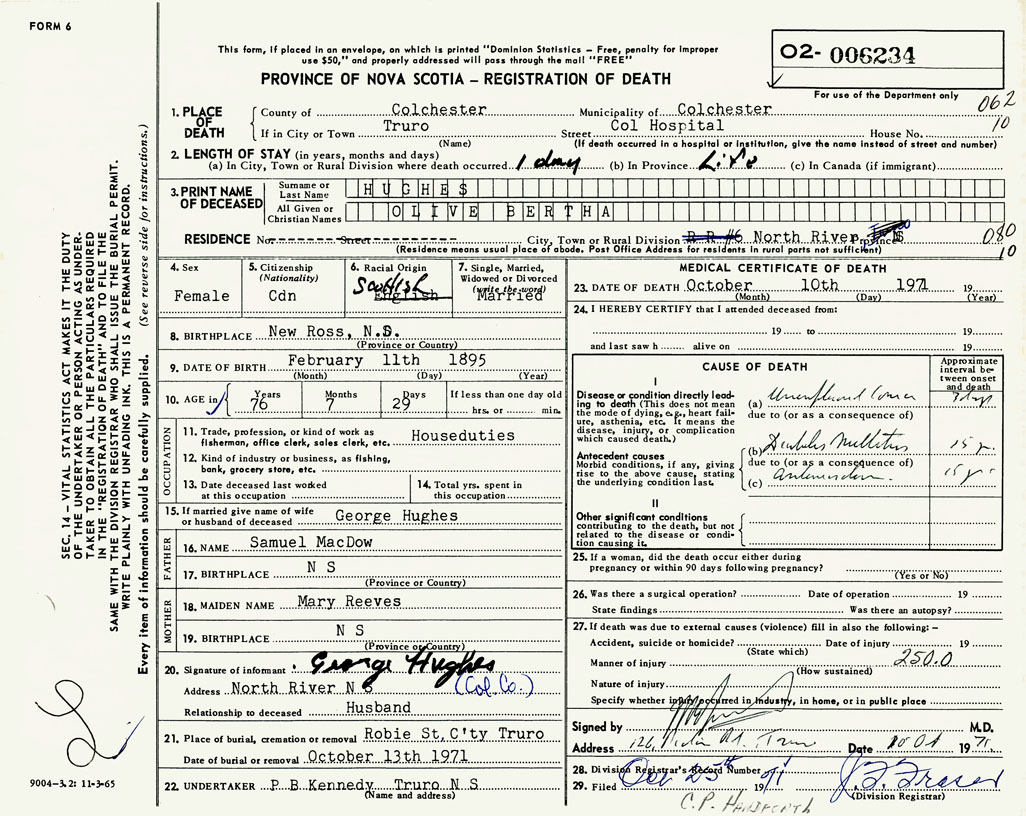 FORM 6
This form, if placed in an envelope, on which is printed "Dominion Statistics – Free, penalty for improper
use $50," and properly addressed will pass through the mail "FREE"
PROVINCE OF NOVA SCOTIA – REGISTRATION OF DEATH
02- 006234
For use of the Department only
062
10
1. PLACE OF DEATH
County of Colchester Municipality of Colchester
If in City or Town Truro Street Col Hospital House No.
(Name) (If death occurred in a hospital or institution, give the name instead of street and number)
2. LENGTH OF STAY (in years, months and days)
(a) In City, Town or Rural Division where death occurred 1 day (b) In Province Life (c) In Canada (if immigrant)
3. PRINT NAME OF DECEASED
Surname or Last Name HUGHES
All Given or Christian Names OLIVE BERTHA
RESIDENCE No. Street City, Town or Rural Division R R #6 North River Province N S
080
10
(Residence means usual place of abode. Post Office Address for residents in rural parts not sufficient)
4. Sex
Female
5. Citizenship
(Nationality)
Cdn
6. Racial Origin
Scottish
English
7. Single, Married, Widowed or Divorced
(write the word)
Married
8. BIRTHPLACE New Ross, N.S.
(Province or Country)
9. DATE OF BIRTH February 11th 1895
(Month) (Day) (Year)
10. AGE in Years 76 Months 7 Days 29 If less than one day old
hrs. or min.
OCCUPATION
11. Trade, profession, or kind of work as
fisherman, office clerk, sales clerk, etc. Houseduties
12. Kind of industry or business, as fishing,
bank, grocery store, etc.
13. Date deceased last worked
at this occupation
14. Total yrs. spent in
this occupation
15. If married give name of wife
or husband of deceased George Hughes
FATHER
16. NAME Samuel MacDow
17. BIRTHPLACE N S
(Province or Country)
MOTHER
18. MAIDEN NAME Mary Reeves
19. BIRTHPLACE N S
(Province or Country)
20. Signature of informant George Hughes
Address North River N S (Col. Co.)
Relationship to deceased Husband
21. Place of burial, cremation or removal Robie St. C'ty Truro
Date of burial or removal October 13th 1971
22. UNDERTAKER P B Kennedy Truro N S
(Name and address)
MEDICAL CERTIFICATE OF DEATH
23. DATE OF DEATH October 10th 1971 19
(Month) (Day) (Year)
24. I HEREBY CERTIFY that I attended deceased from:
19 to 19
and last saw h alive on 19
CAUSE OF DEATH
Approximate interval between onset and death
I
Disease or condition directly leading to death (This does not mean the mode of dying, e.g., heart failure, asthenia, etc. It means the disease, injury, or complication which caused death.)
(a)
due to (or as a consequence of)
Antecedent causes
Morbid conditions, if any, giving rise to the above cause, stating the underlying condition last.
(b) Diabetes Mellitus 15 yr.
due to (or as a consequence of)
(c) 15 yr.
II
Other significant conditions
contributing to the death, but not
related to the disease or condition causing it.
25. If a woman, did the death occur either during
pregnancy or within 90 days following pregnancy?
(Yes or No)
26. Was there a surgical operation? Date of operation 19
State findings Was there an autopsy?
27. If death was due to external causes (violence) fill in also the following: –
Accident, suicide or homicide? Date of injury 19
(State which)
Manner of injury 250.0
(How sustained)
Nature of injury
Specify whether injury occurred in industry, in home, or in public place
Signed by M.D.
Address Truro Date 10 Oct 1971
28. Division Registrar's Record Number
29. Filed Oct 25th 1971
(Division Registrar)
SEC. 14 – VITAL STATISTICS ACT MAKES IT THE DUTY
OF THE UNDERTAKER OR PERSON ACTING AS UNDER-
TAKER TO OBTAIN ALL THE PARTICULARS REQUIRED
IN THE "REGISTRATION OF DEATH" AND TO FILE THE
SAME WITH THE DIVISION REGISTRAR WHO SHALL ISSUE THE BURIAL PERMIT.
WRITE PLAINLY WITH UNFADING INK. THIS IS A PERMANENT RECORD.
Every item of information should be carefully supplied. (See reverse side for instructions.)
9004-3.2: 11-3-65